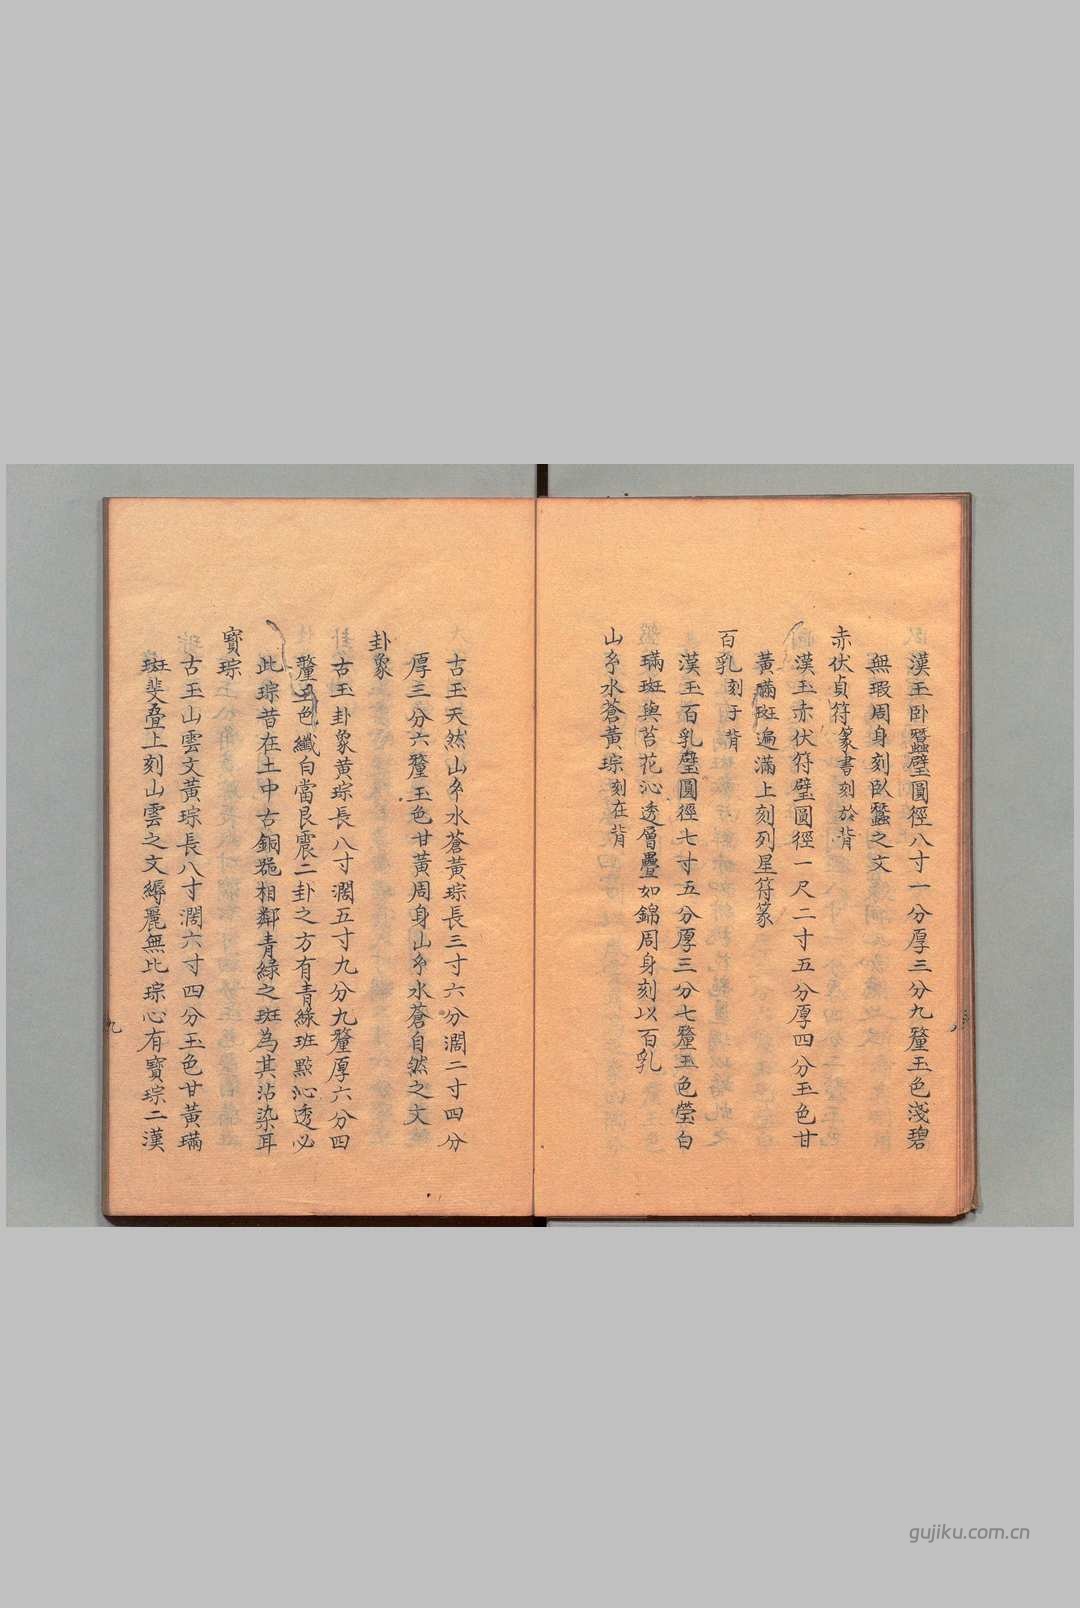 漢玉卧蠶璧圓徑八寸一分厚三分九釐玉色淺碧
無瑕周身刻卧蠶之文
赤伏貞符篆書刻於背
漢玉赤伏符璧圓徑一尺二寸五分厚四分玉色甘
黃㻞斑遍滿上刻列星符篆
百乳刻于背
漢玉百乳璧圓徑七寸五分厚三分七釐玉色瑩白
㻞斑與苔花沁透層疊如錦周身刻以百乳
山玄水蒼黃琮刻在背
古玉天然山玄水蒼黃琮長三寸六分濶二寸四分
厚三分六釐玉色甘黃周身山玄水蒼自然之文
卦象
古玉卦象黃琮長八寸濶五寸九分九釐厚六分四
釐玉色纖白當艮震二卦之方有青綠班㸃沁透必
此琮昔在土中古銅器相鄰青綠之斑為其沾染耳
寶琮
古玉山雲文黃琮長八寸濶六寸四分玉色甘黃㻞
斑斐疊上刻山雲之文縟麗無比琮心有寶琮二漢
九
gujiku.com.cn